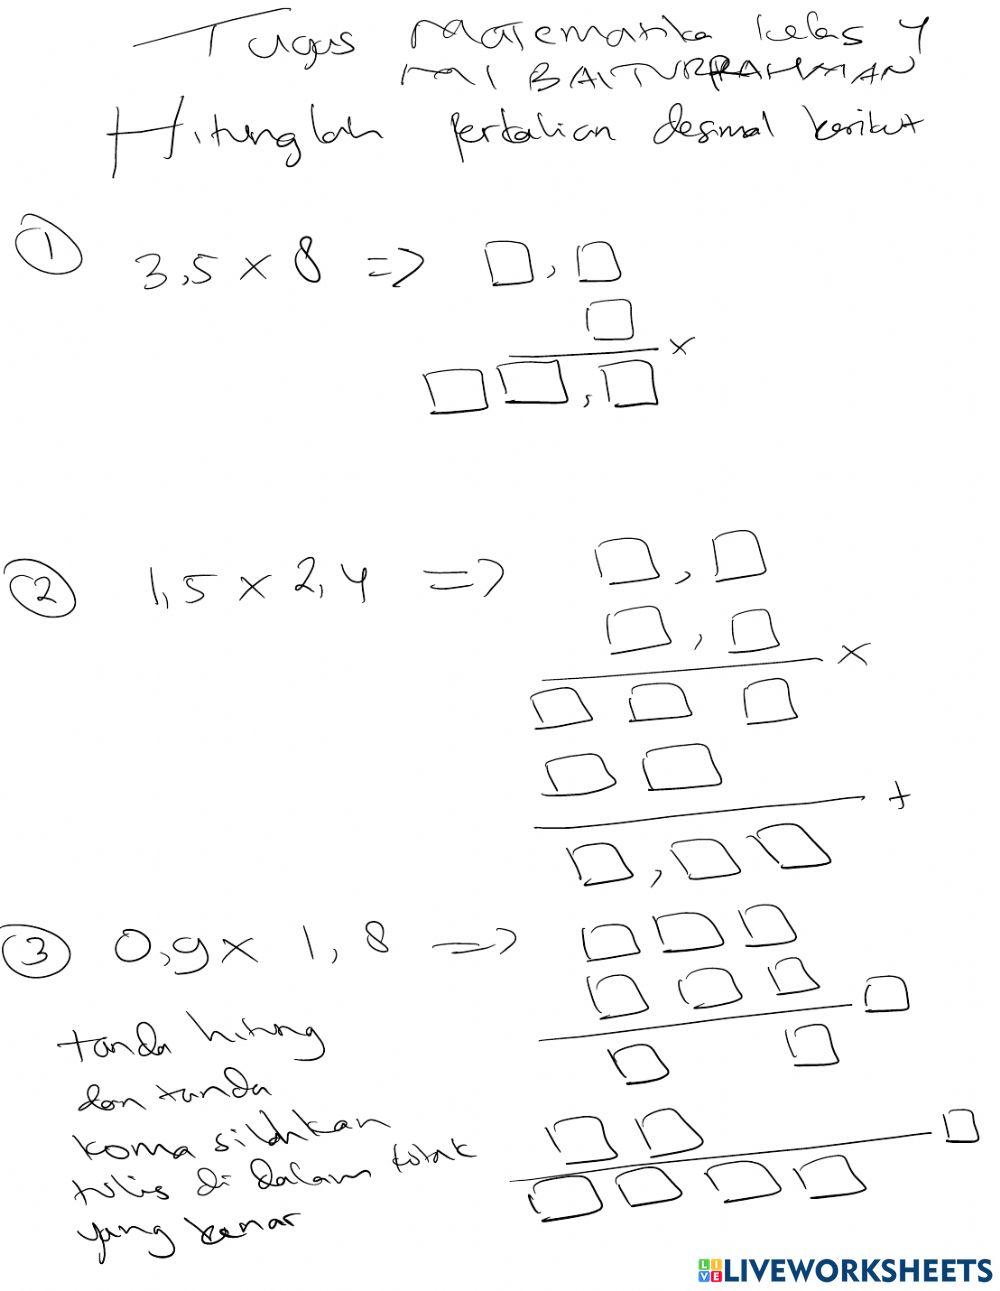 Tugas Matematika kelas 4
MI BAITURRAHMAN
Hitunglah perkalian desimal berikut
1 3,5 × 8 => ,
×
,
2 1,5 × 2,4 => ,
, ×
+
,
3 0,9 × 1,8 =>
tanda hitung
dan tanda
koma silahkan
tulis di dalam kotak
yang benar
LIVEWORKSHEETS